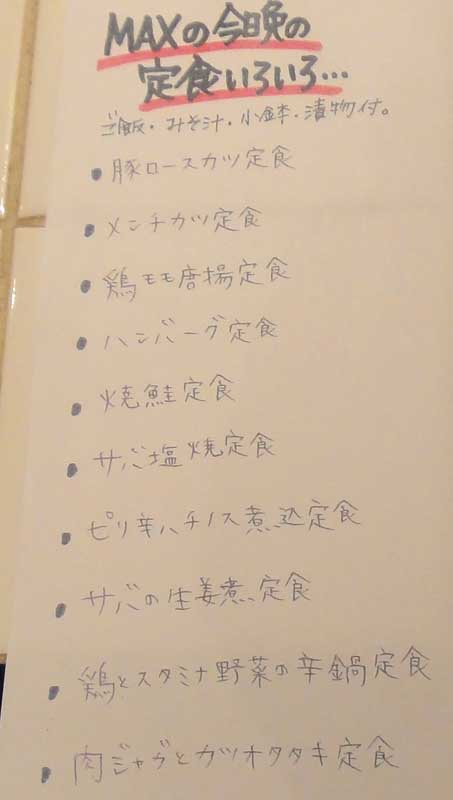 MAXの今晩の
定食いろいろ…
ご飯・みそ汁・小鉢・漬物付。
• 豚ロースカツ定食
• メンチカツ定食
• 鶏モモ唐揚定食
• ハンバーグ定食
• 焼鮭定食
• サバ塩焼定食
• ピリ辛ハチノス煮込定食
• サバの生姜煮定食
• 鶏とスタミナ野菜の辛鍋定食
• 肉ジャガとカツオタタキ定食